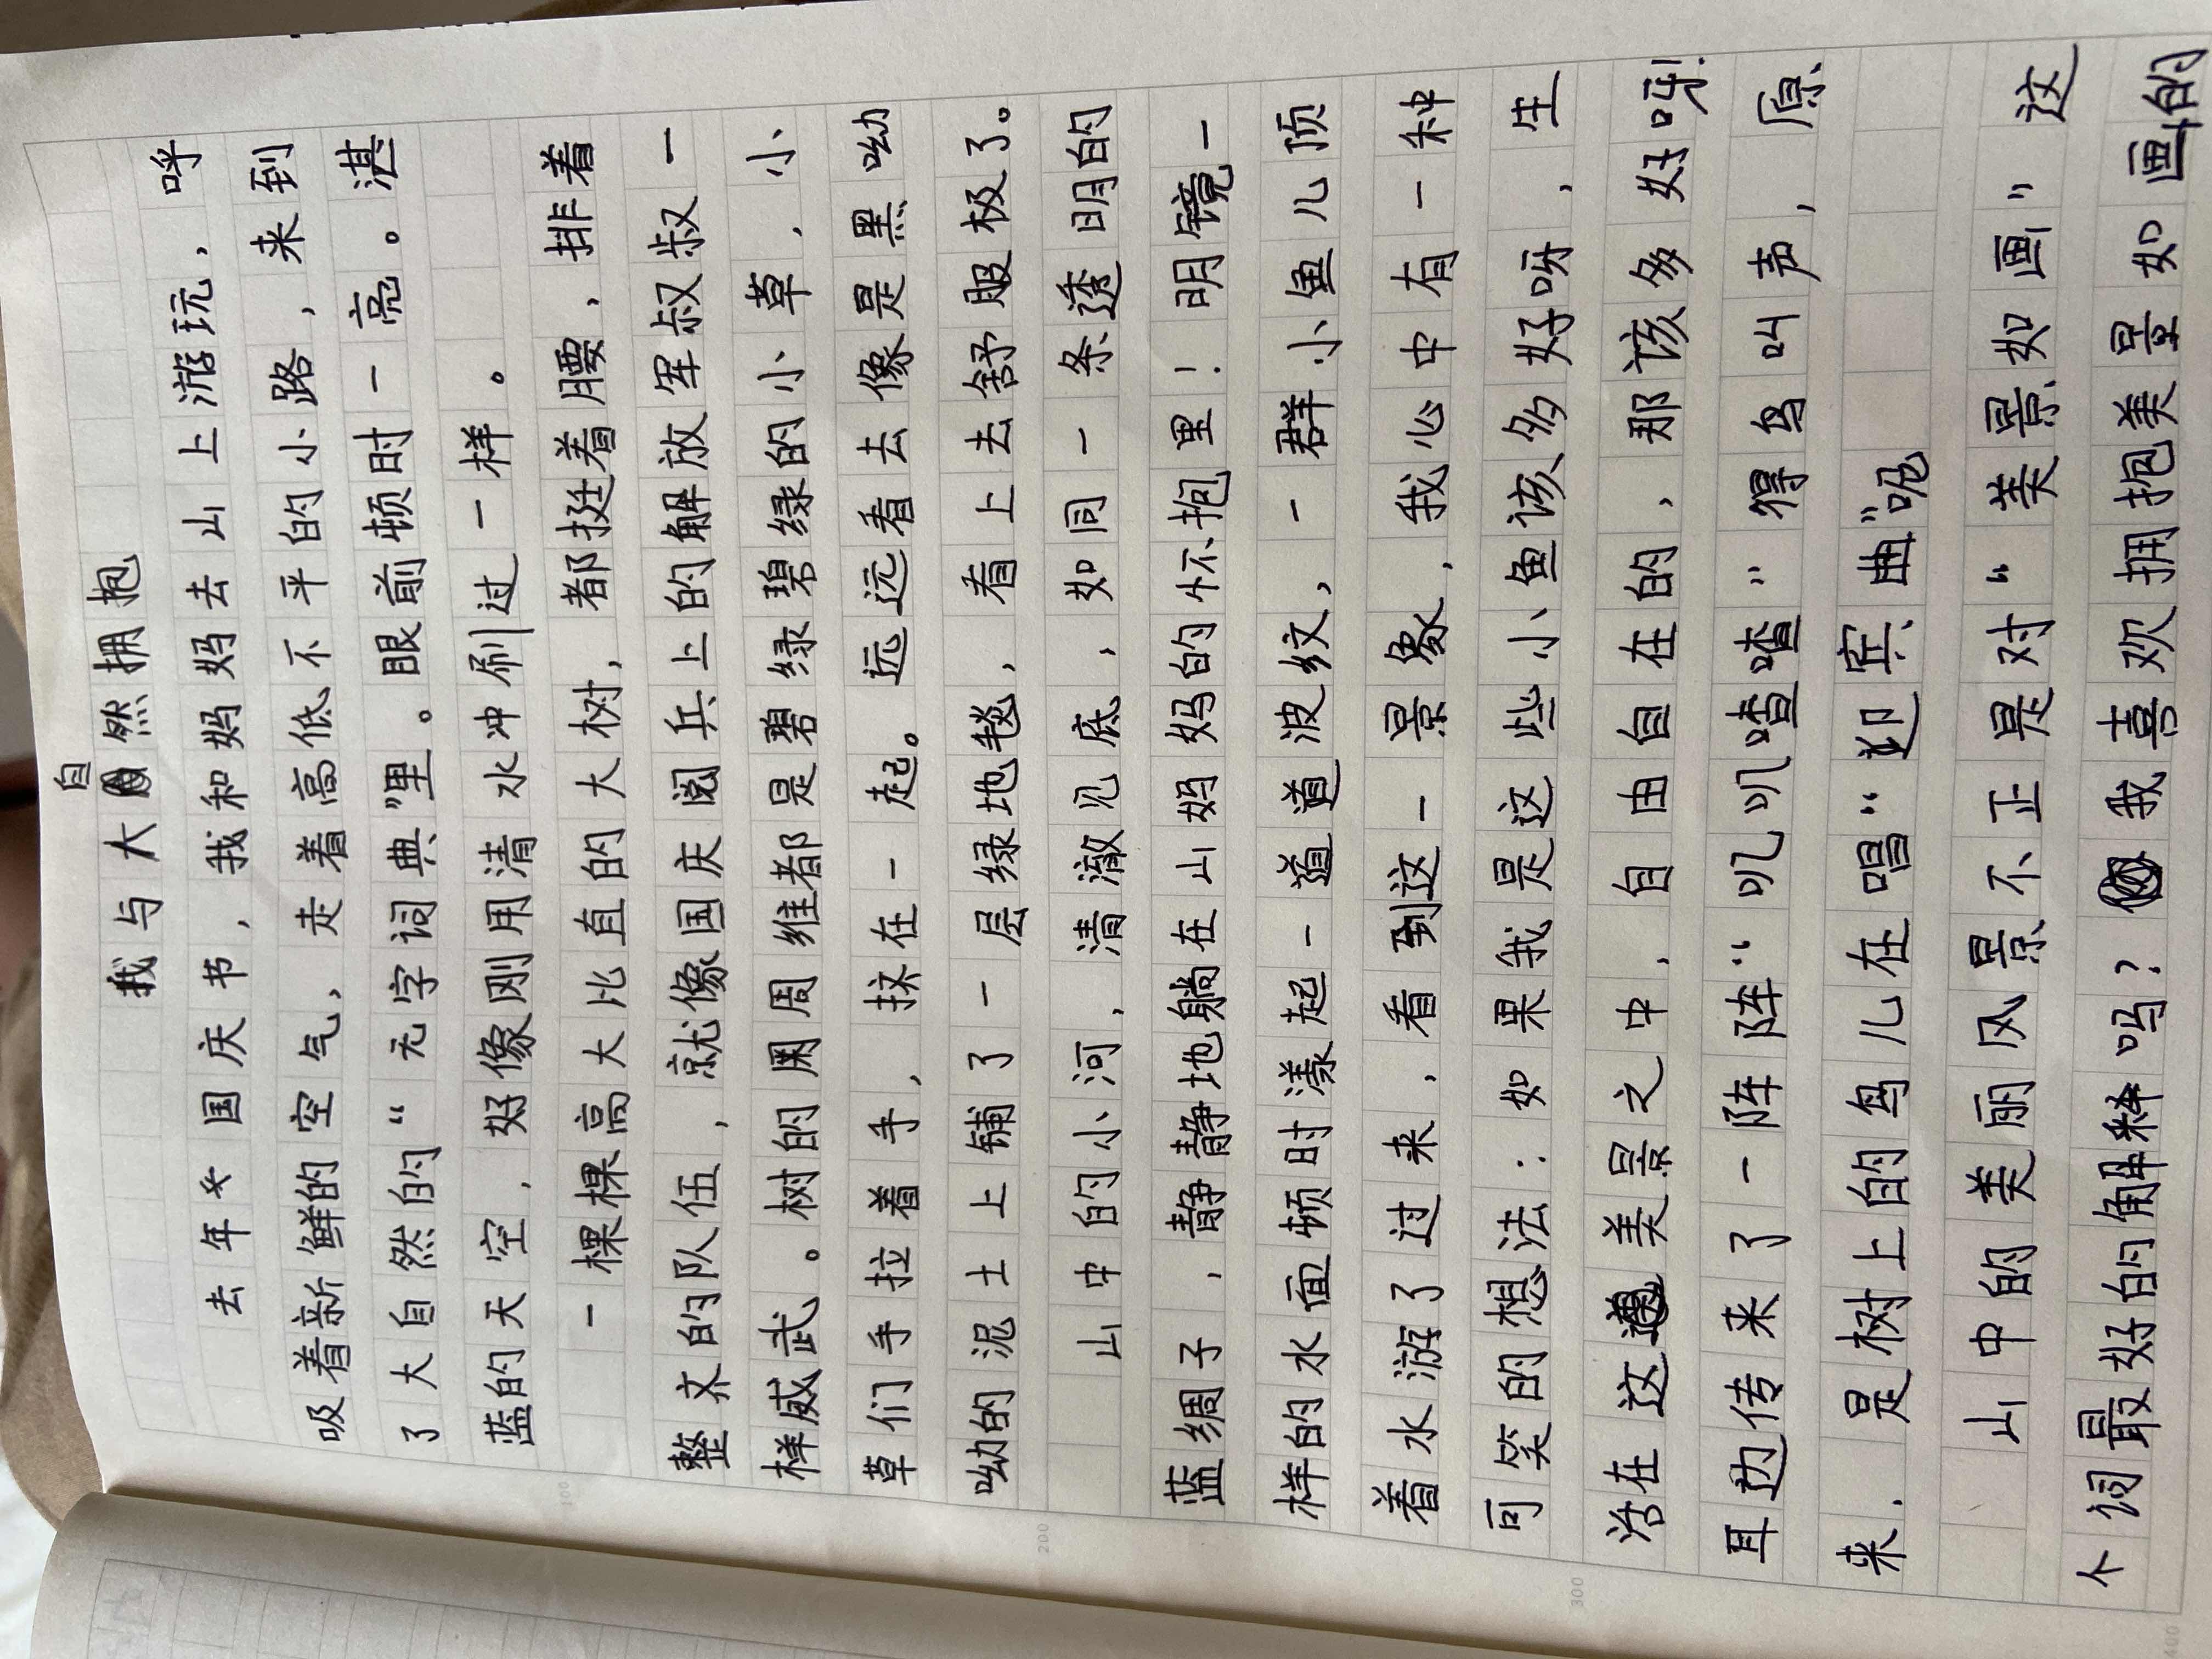 我与大自然拥抱
去年国庆节，我和妈妈去山上游玩，呼
吸着新鲜的空气，走着高低不平的小路，来到
了大自然的“无字词典”里。眼前顿时一亮。湛
蓝的天空，好像刚用清水冲刷过一样。
一棵棵高大比直的大树，都挺着腰，排着
整齐的队伍，就像国庆阅兵上的解放军叔叔一
样威武。树的周维都是碧绿碧绿的小草，小
草们手拉着手，挤在一起。远远看去像是黑呦
呦的泥土上铺了一层绿地毯，看上去舒服极了。
山中的小河，清澈见底，如同一条透明的
蓝绸子，静静地躺在山妈妈的怀抱里！明镜一
样的水面顿时漾起一道道波纹，一群小鱼儿顶
着水游了过来，看到这一景象，我心中有一种
可笑的想法：如果我是这些小鱼该多好呀，生
活在这美景之中，自由自在的，那该多好呀！
耳边传来了一阵阵“叽叽喳喳”得鸟叫声，原
来，是树上的鸟儿在唱“迎宾曲”呢
山中的美丽风景不正是对“美景如画”这
个词最好的解释吗？我喜欢拥抱美景如画的
100
200
300
400